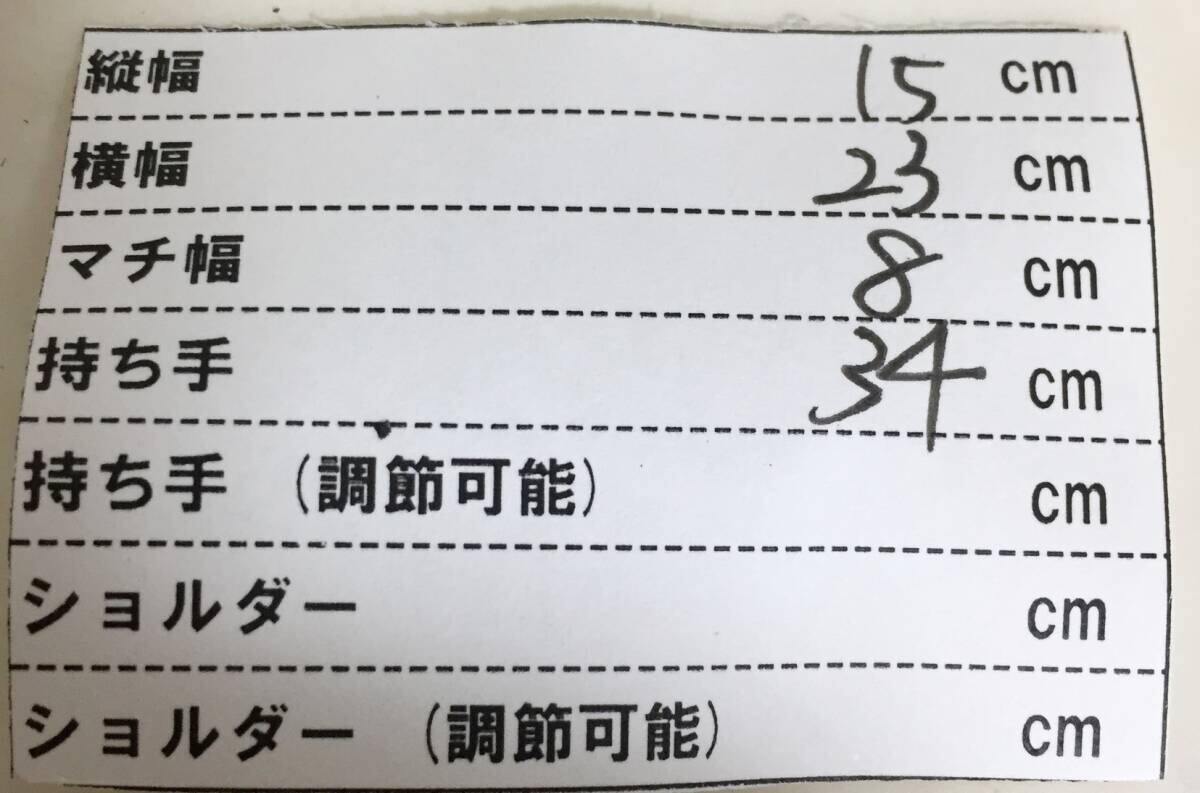 縦幅 15 cm
横幅 23 cm
マチ幅 8 cm
持ち手 34 cm
持ち手 (調節可能) cm
ショルダー cm
ショルダー (調節可能) cm